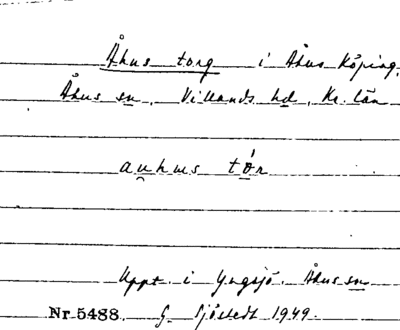 Åhus torg i Åhus Köping,
Åhus sn, Villands hd, Kr. län
au̯hus tǿr
Uppt. i Yngsjö. Åhus sn
Nr 5488. G. Sjöstedt 1949.